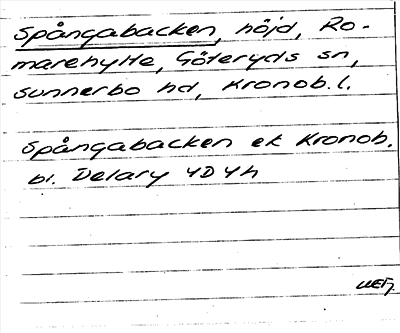 Spångabacken, höjd, Ro-
marehylte, Göteryds sn,
Sunnerbo hd, Kronob. l.
Spångabacken ek Kronob.
bl. Delary 4D4h